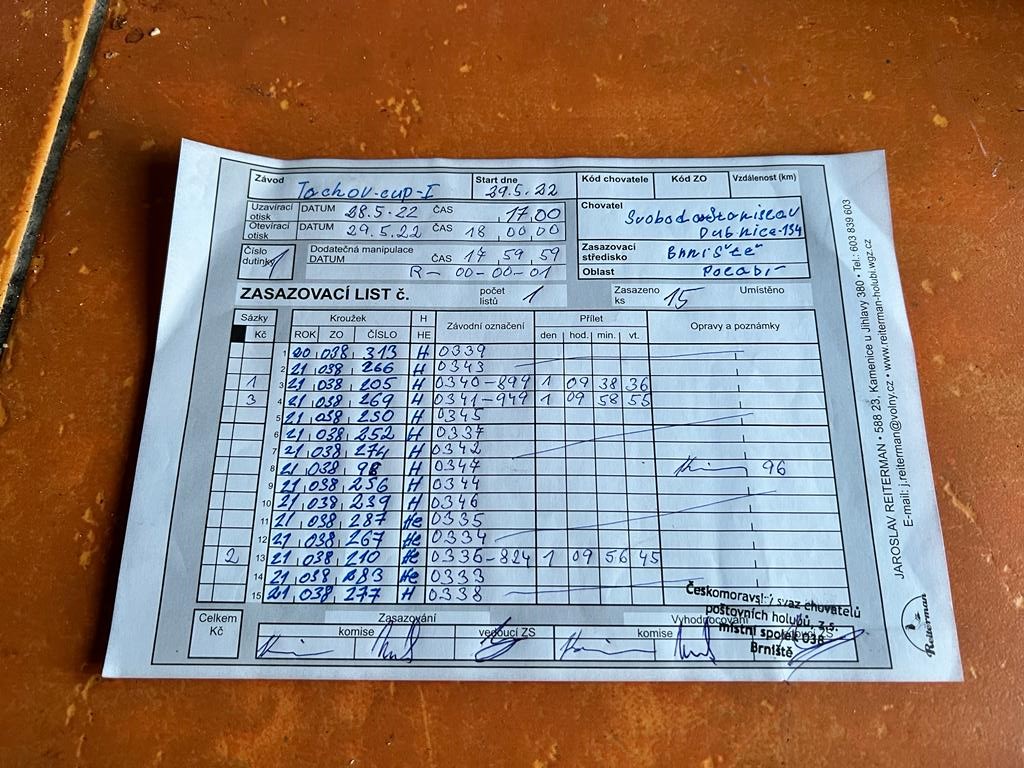 Závod Tachov-cup-I Start dne 29.5.22 Kód chovatele Kód ZO Vzdálenost (km)
Uzavírací otisk DATUM 28.5.22 ČAS 17.00
Otevírací otisk DATUM 29.5.22 ČAS 18 00 00
Chovatel Svoboda Stanislav
Dubnice-134
Číslo dutinky 1 Dodatečná manipulace DATUM ČAS 17 59 59
R- 00-00-01
Zasazovací středisko Brniště
Oblast Polabí
ZASAZOVACÍ LIST č. počet listů 1 Zasazeno ks 15 Umístěno
Sázky Kroužek H Závodní označení Přílet Opravy a poznámky
Kč ROK ZO ČÍSLO HE den hod. min. vt.
1 20 038 313 H 0339
2 21 038 266 H 0343
1 3 21 038 205 H 0340-894 1 09 38 36
3 4 21 038 269 H 0341-949 1 09 58 55
5 21 038 250 H 0345
6 21 038 252 H 0337
7 21 038 274 H 0342
8 21 038 96 H 0347 96
9 21 038 256 H 0344
10 21 038 239 H 0346
11 21 038 287 He 0335
12 21 038 267 He 0334
2 13 21 038 210 He 0336-824 1 09 56 45
14 21 038 83 He 0333
15 21 038 277 H 0338
Celkem Kč Zasazování Vyhodnocování
komise vedoucí ZS komise
Českomoravský svaz chovatelů
poštovních holubů, z.s.
místní spolek 038
Brniště
JAROSLAV REITERMAN • 588 23, Kamenice u Jihlavy 380 • Tel.: 603 839 603
E-mail: j.reiterman@volny.cz • www.reiterman-holubi.wgz.cz
Reiterman